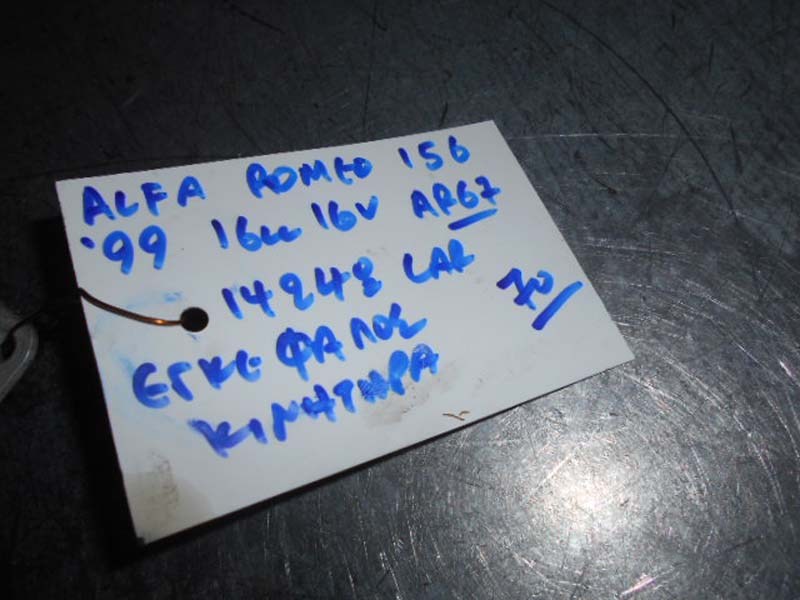 ALFA ROMEO 156
'99 16cc 16V AR67
14242 CAR
70
ΕΓΚΕΦΑΛΟΣ
ΚΙΝΗΤΗΡΑ